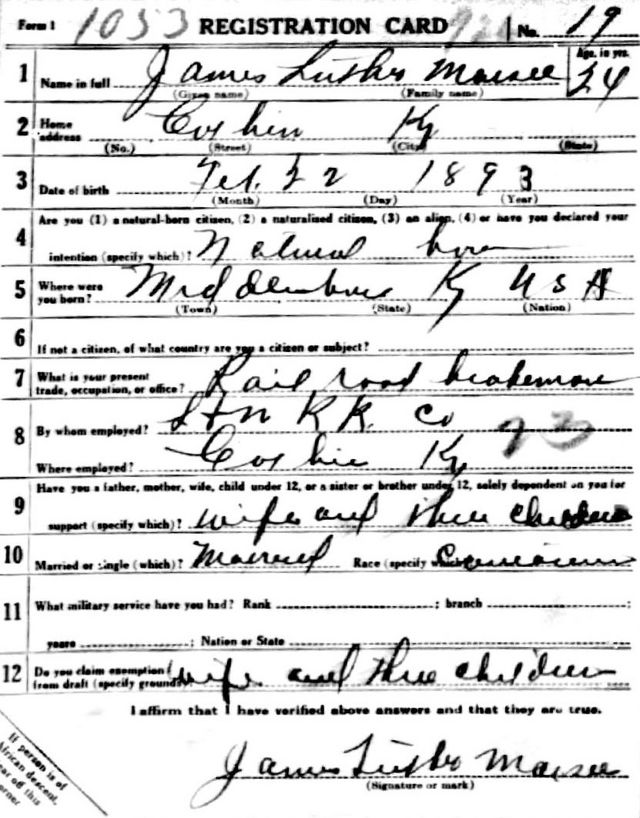 Form 1 1053 REGISTRATION CARD No. 19
1 Name in full James Luther Age, in yrs. 24
(Given name) (Family name)
2 Home address Ky
(No.) (Street) (City) (State)
3 Date of birth Feb. 22 1893
(Month) (Day) (Year)
4 Are you (1) a natural-born citizen, (2) a naturalized citizen, (3) an alien, (4) or have you declared your
intention (specify which)? Natural born
5 Where were you born? Ky USA
(Town) (State) (Nation)
6 If not a citizen, of what country are you a citizen or subject?
7 What is your present trade, occupation, or office? Rail road brakeman
8 By whom employed? L & N R R. Co 93
Where employed? Ky
9 Have you a father, mother, wife, child under 12, or a sister or brother under 12, solely dependent on you for
support (specify which)? wife and three children
10 Married or single (which)? Married Race (specify which)? Caucasian
11 What military service have you had? Rank ; branch ;
years ; Nation or State
12 Do you claim exemption from draft (specify grounds)? wife and three children
I affirm that I have verified above answers and that they are true.
James Luther
(Signature or mark)
If person is of
African descent,
tear off this
corner.